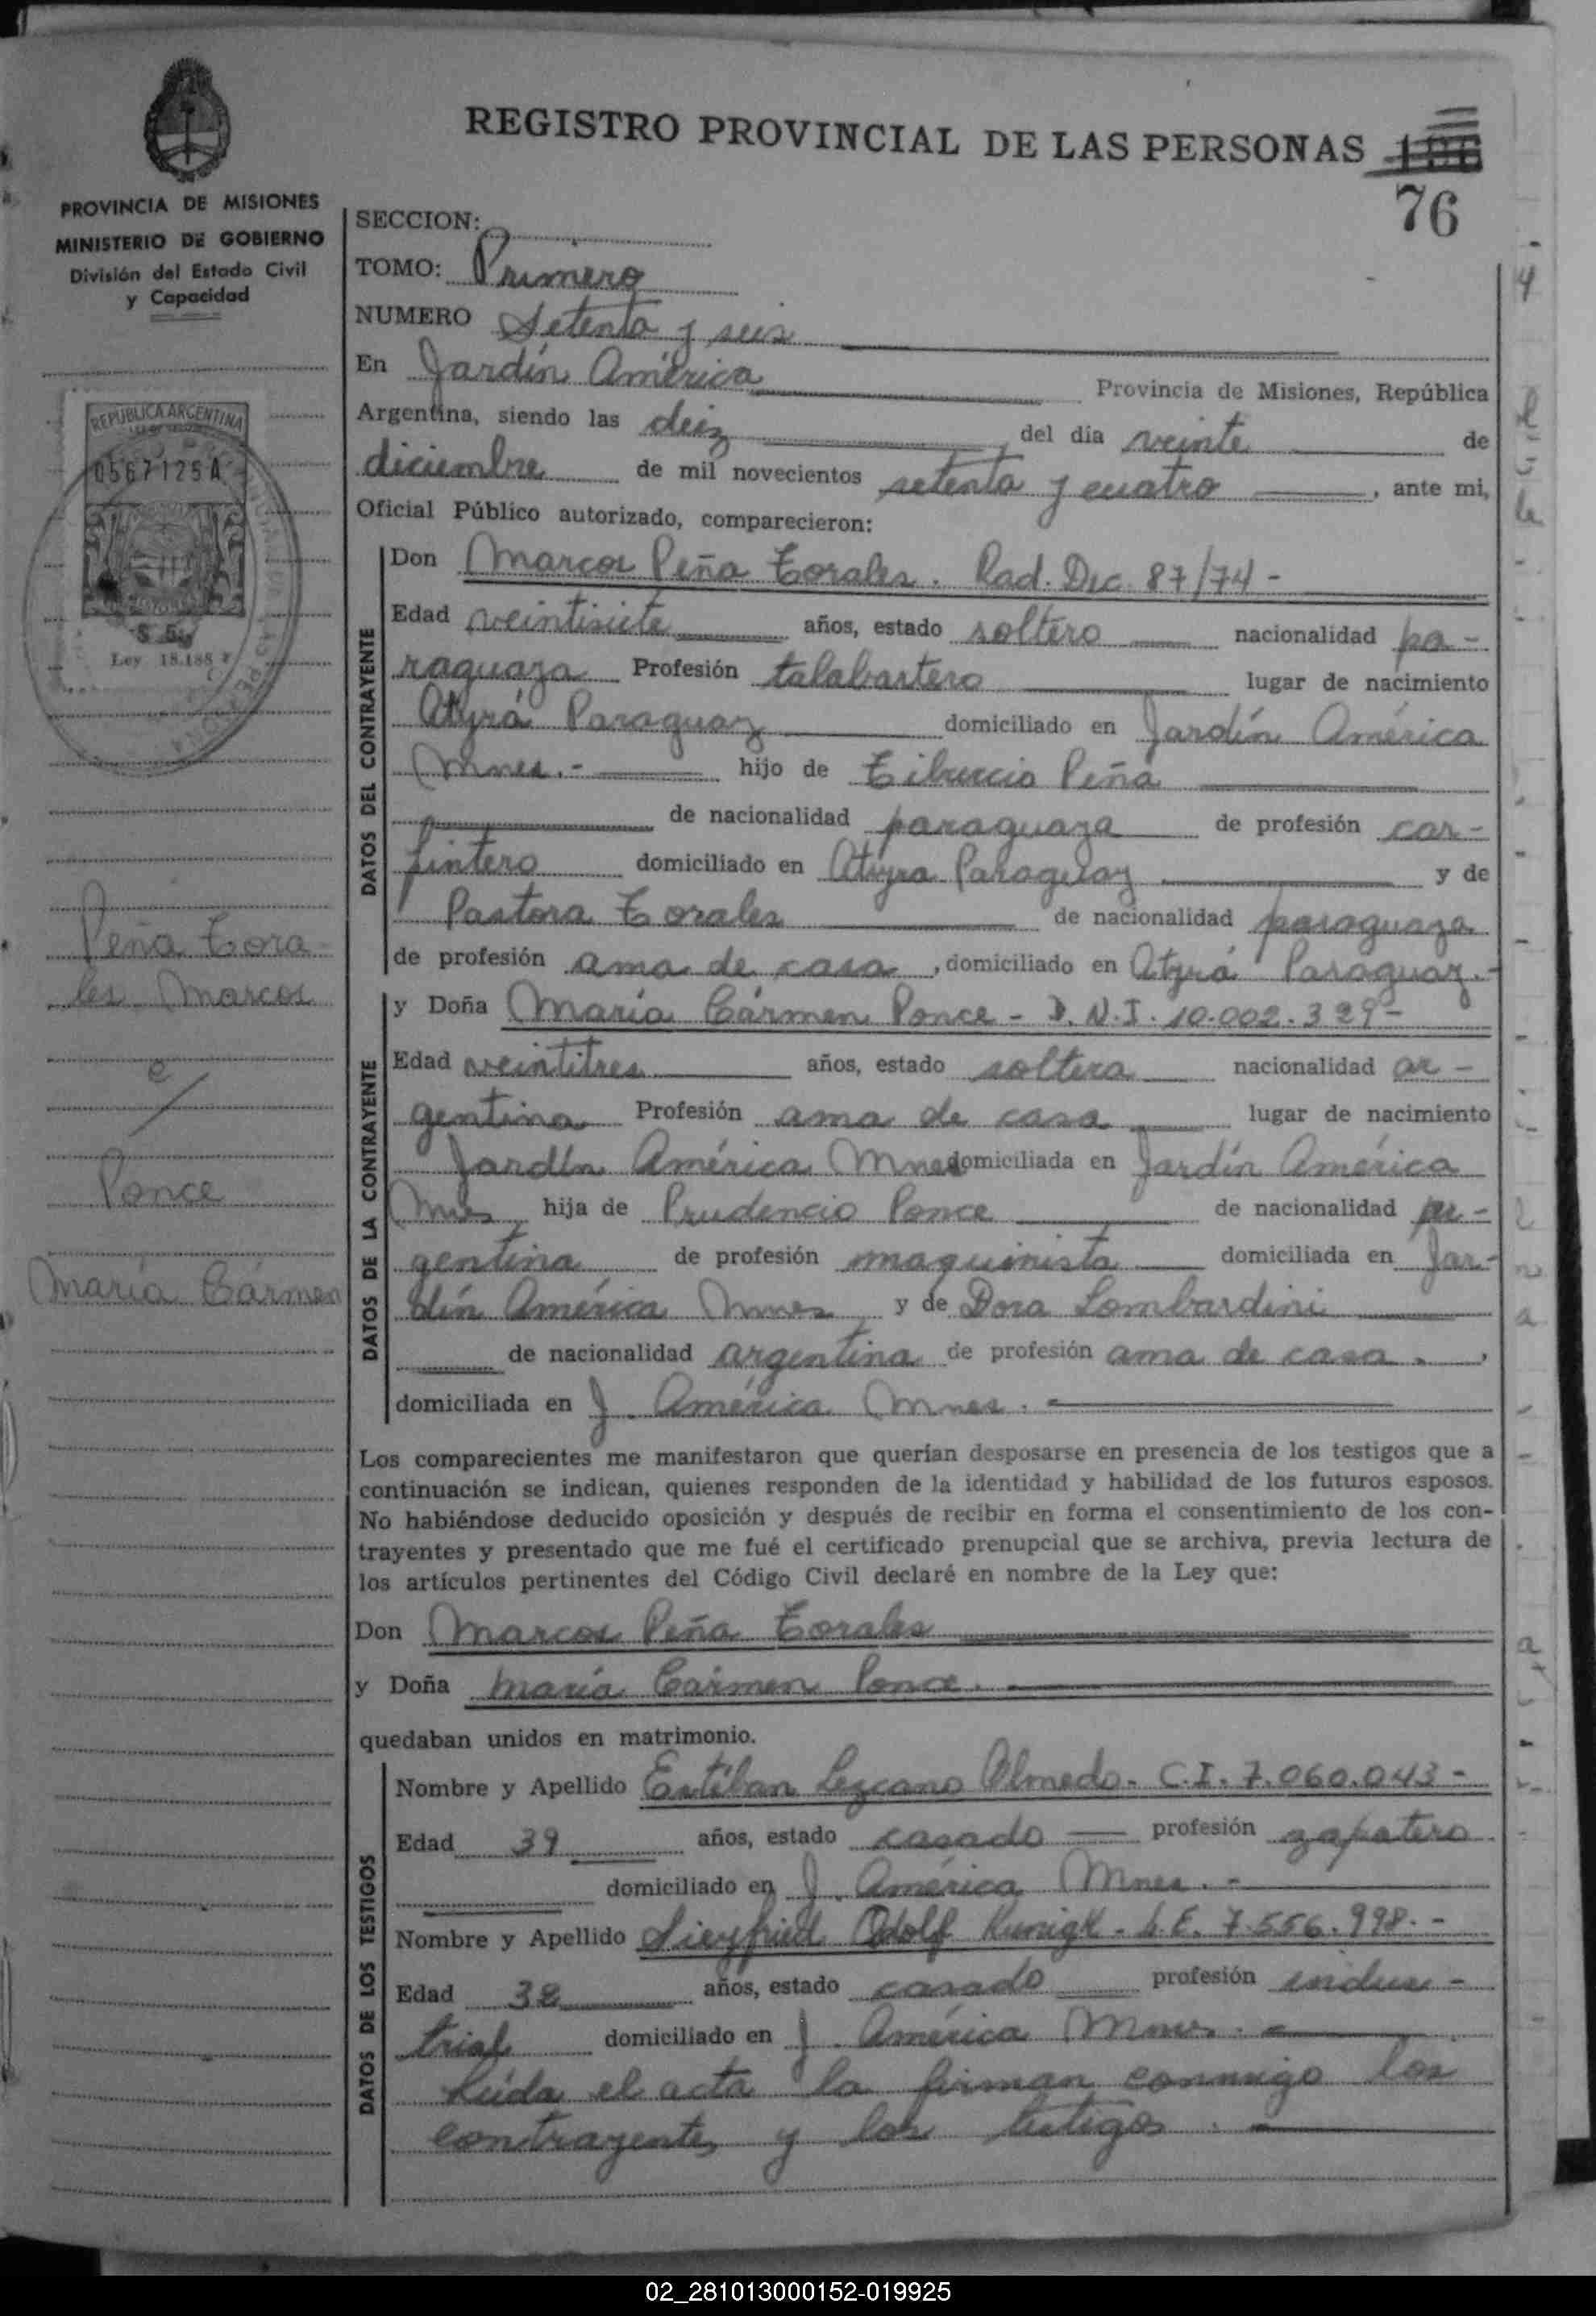 REGISTRO PROVINCIAL DE LAS PERSONAS
76
PROVINCIA DE MISIONES
MINISTERIO DE GOBIERNO
División del Estado Civil
y Capacidad
REPUBLICA ARGENTINA
0567125A
Ley 18.188
Peña Tora
les Marcos
c/
Ponce
María Cármen
SECCION:
TOMO: Primero
NUMERO Setenta y seis
En Jardín América Provincia de Misiones, República
Argentina, siendo las diez del dia veinte de
diciembre de mil novecientos setenta y cuatro, ante mi,
Oficial Público autorizado, comparecieron:
DATOS DEL CONTRAYENTE
Don Marcos Peña Torales. Rad. Dec. 87/74 -
Edad veintisiete años, estado soltero nacionalidad pa-
raguaya Profesión talabartero lugar de nacimiento
Atyrá Paraguay domiciliado en Jardín América
Mnes.- hijo de Tiburcio Peña
de nacionalidad paraguaya de profesión car-
pintero domiciliado en Atyra Paraguay y de
Pastora Torales de nacionalidad paraguaya
de profesión ama de casa, domiciliado en Atyrá Paraguay.-
DATOS DE LA CONTRAYENTE
y Doña María Cármen Ponce - D.N.I. 10.002.329-
Edad veintitres años, estado soltera nacionalidad ar-
gentina Profesión ama de casa lugar de nacimiento
Jardín América Mnes domiciliada en Jardín América
Mnes hija de Prudencio Ponce de nacionalidad ar-
gentina de profesión maquinista domiciliada en Jar-
dín América Mnes y de Dora Lombardini
de nacionalidad argentina de profesión ama de casa.,
domiciliada en J. América Mnes.
Los comparecientes me manifestaron que querían desposarse en presencia de los testigos que a
continuación se indican, quienes responden de la identidad y habilidad de los futuros esposos.
No habiéndose deducido oposición y después de recibir en forma el consentimiento de los con-
trayentes y presentado que me fué el certificado prenupcial que se archiva, previa lectura de
los artículos pertinentes del Código Civil declaré en nombre de la Ley que:
Don Marcos Peña Torales
y Doña María Cármen Ponce.
quedaban unidos en matrimonio.
DATOS DE LOS TESTIGOS
Nombre y Apellido Estéban Lezcano Olmedo.- C.I. 7.060.043-
Edad 39 años, estado casado profesión zapatero
domiciliado en J. América Mnes.-
Nombre y Apellido Sieyfried Adolf Kunigk - L.E. 7.556.998.-
Edad 38 años, estado casado profesión indus-
trial domiciliado en J. América Mnes.
Leída el acta la firman conmigo los
contrayentes y los testigos.
02_281013000152-019925